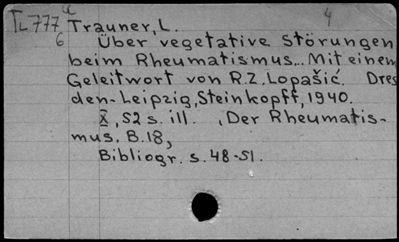 IL777 u Trauner, L. 4
6 Über vegetative Störungen
beim Rheumatismus... Mit einem
Geleitwort von R.Z. Lopašić. Dres
den-Leipzig, Steinkopff, 1940.
X, 52 s. ill. , Der Rheumatis-
mus. B.18,
Bibliogr. s. 48-51.